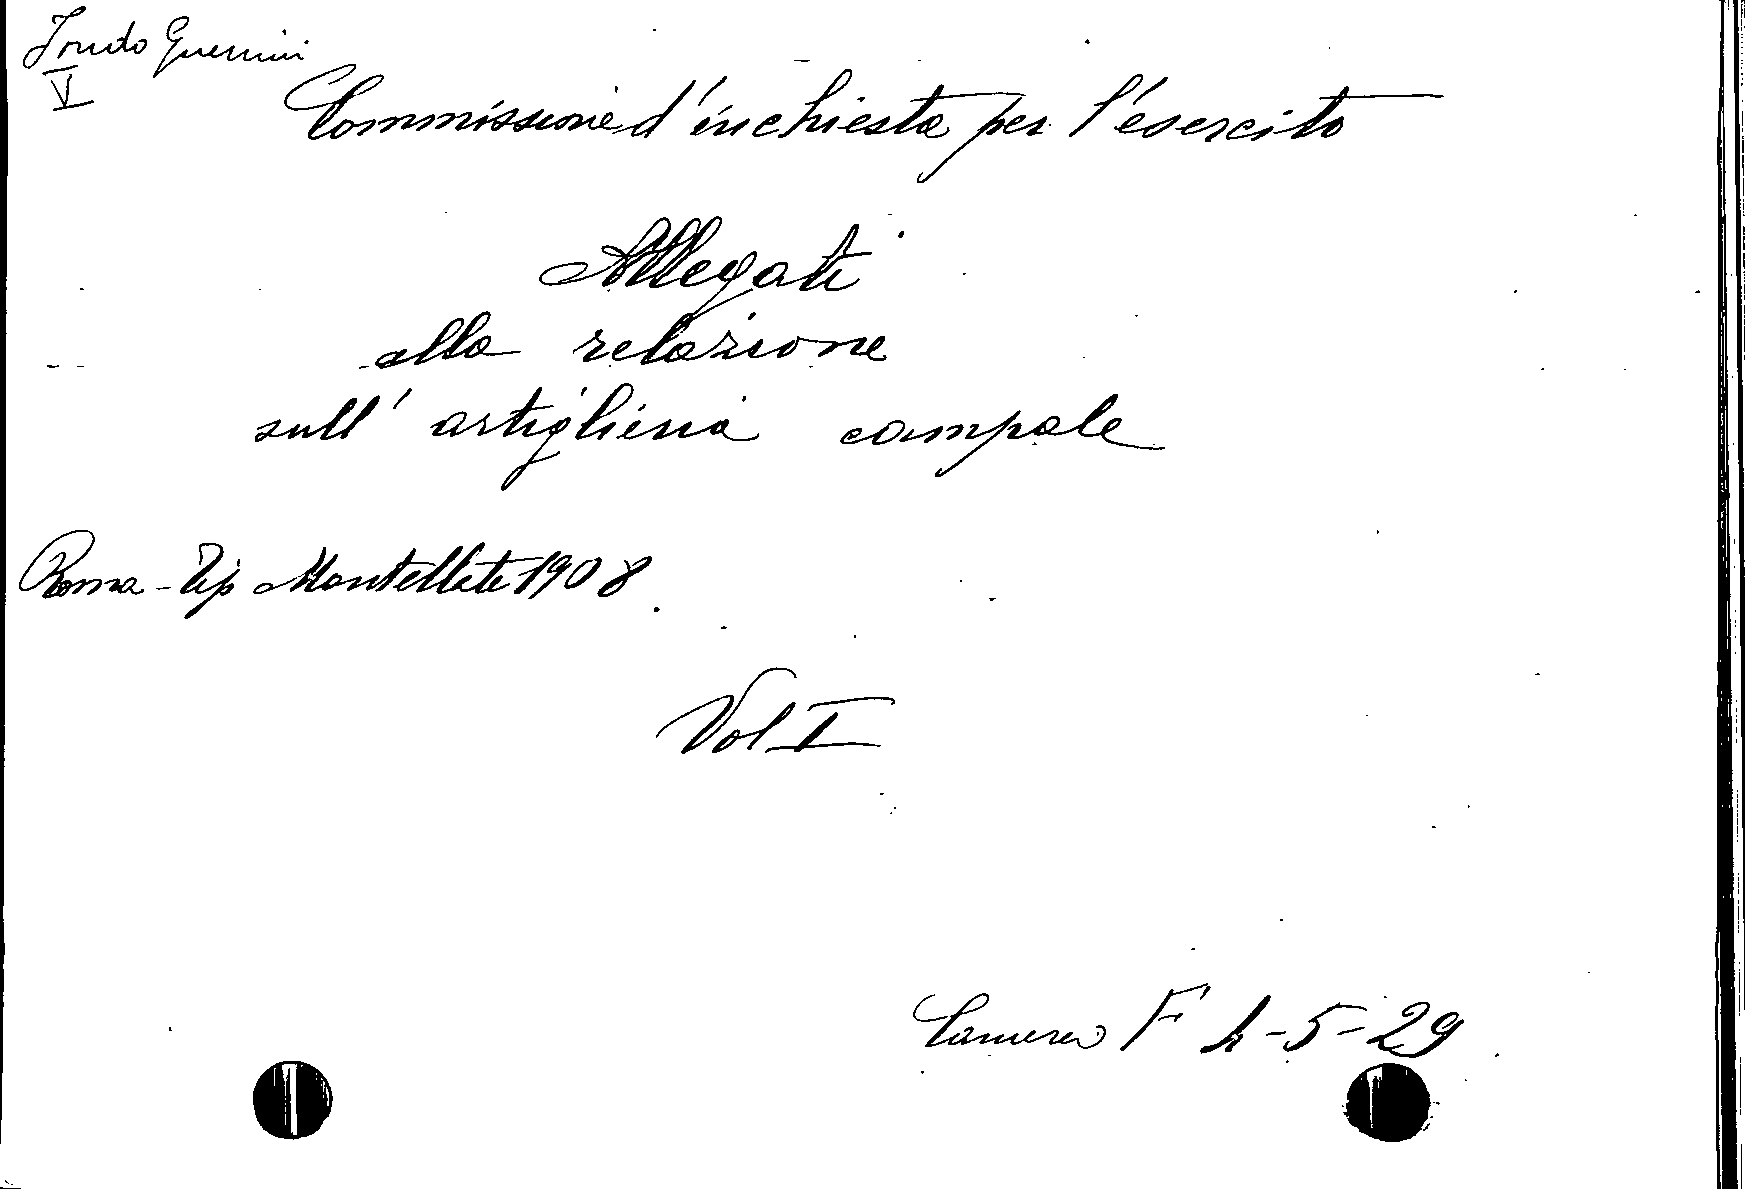 Fondo Guerrini
V
Commissione d'inchiesta per l'esercito
Allegati
alla relazione
sull' artiglieria campale
Roma - Tip Mantellate 1908
Vol I
Camera F 2-5-29